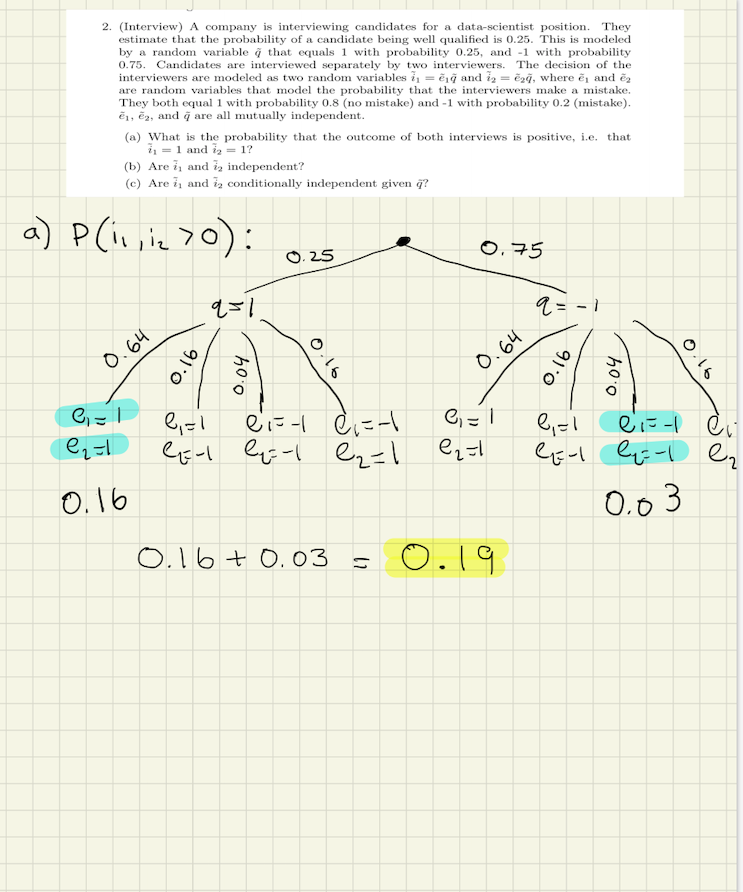 2. (Interview) A company is interviewing candidates for a data-scientist position. They
estimate that the probability of a candidate being well qualified is 0.25. This is modeled
by a random variable q̃ that equals 1 with probability 0.25, and -1 with probability
0.75. Candidates are interviewed separately by two interviewers. The decision of the
interviewers are modeled as two random variables ĩ₁ = ẽ₁q̃ and ĩ₂ = ẽ₂q̃, where ẽ₁ and ẽ₂
are random variables that model the probability that the interviewers make a mistake.
They both equal 1 with probability 0.8 (no mistake) and -1 with probability 0.2 (mistake).
ẽ₁, ẽ₂, and q̃ are all mutually independent.
(a) What is the probability that the outcome of both interviews is positive, i.e. that
ĩ₁ = 1 and ĩ₂ = 1?
(b) Are ĩ₁ and ĩ₂ independent?
(c) Are ĩ₁ and ĩ₂ conditionally independent given q̃?
a) P(i₁, i₂ > 0):
0.25 0.75
q=1 q=-1
0.64 0.16 0.04 0.16 0.64 0.16 0.04 0.16
e₁=1 e₁=1 e₁=-1 e₁=-1 e₁=1 e₁=1 e₁=-1 e₁
e₂=1 e₂=-1 e₂=-1 e₂=1 e₂=1 e₂=-1 e₂=-1 e₂
0.16 0.03
0.16 + 0.03 = 0.19